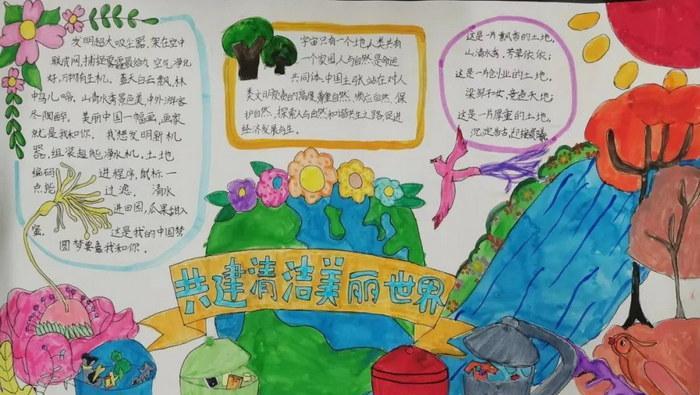 发明超大吸尘器，架在空中
联成网，捕捉雾霾最给力，空气净化
好，万物有生机。蓝天白云飘，林
中鸟儿鸣，山清水秀景色美，中外游客
水陶醉。美丽中国一幅画，画家
就是我和你。我想发明新机
器，组装超能净水机，土地
编码 进程序，鼠标一
点就 过滤。 清水
进田园，瓜果甜入
蜜。 这是我的中国梦
圆梦要靠我和你。
宇宙只有一个地，人类共有
一个家园，人与自然是命运
共同体，中国主张站在对人
类文明负责的高度，尊重自然、顺应自然、保
护自然，探索人与自然和谐共生之路，促进
经济发展与生
这是一片飘香的土地，
山清水秀，芳草依依；
这是一片创业的土地，
梁昇和女，竞造天地；
这是一片厚重的土地，
沉淀
共建清洁美丽世界